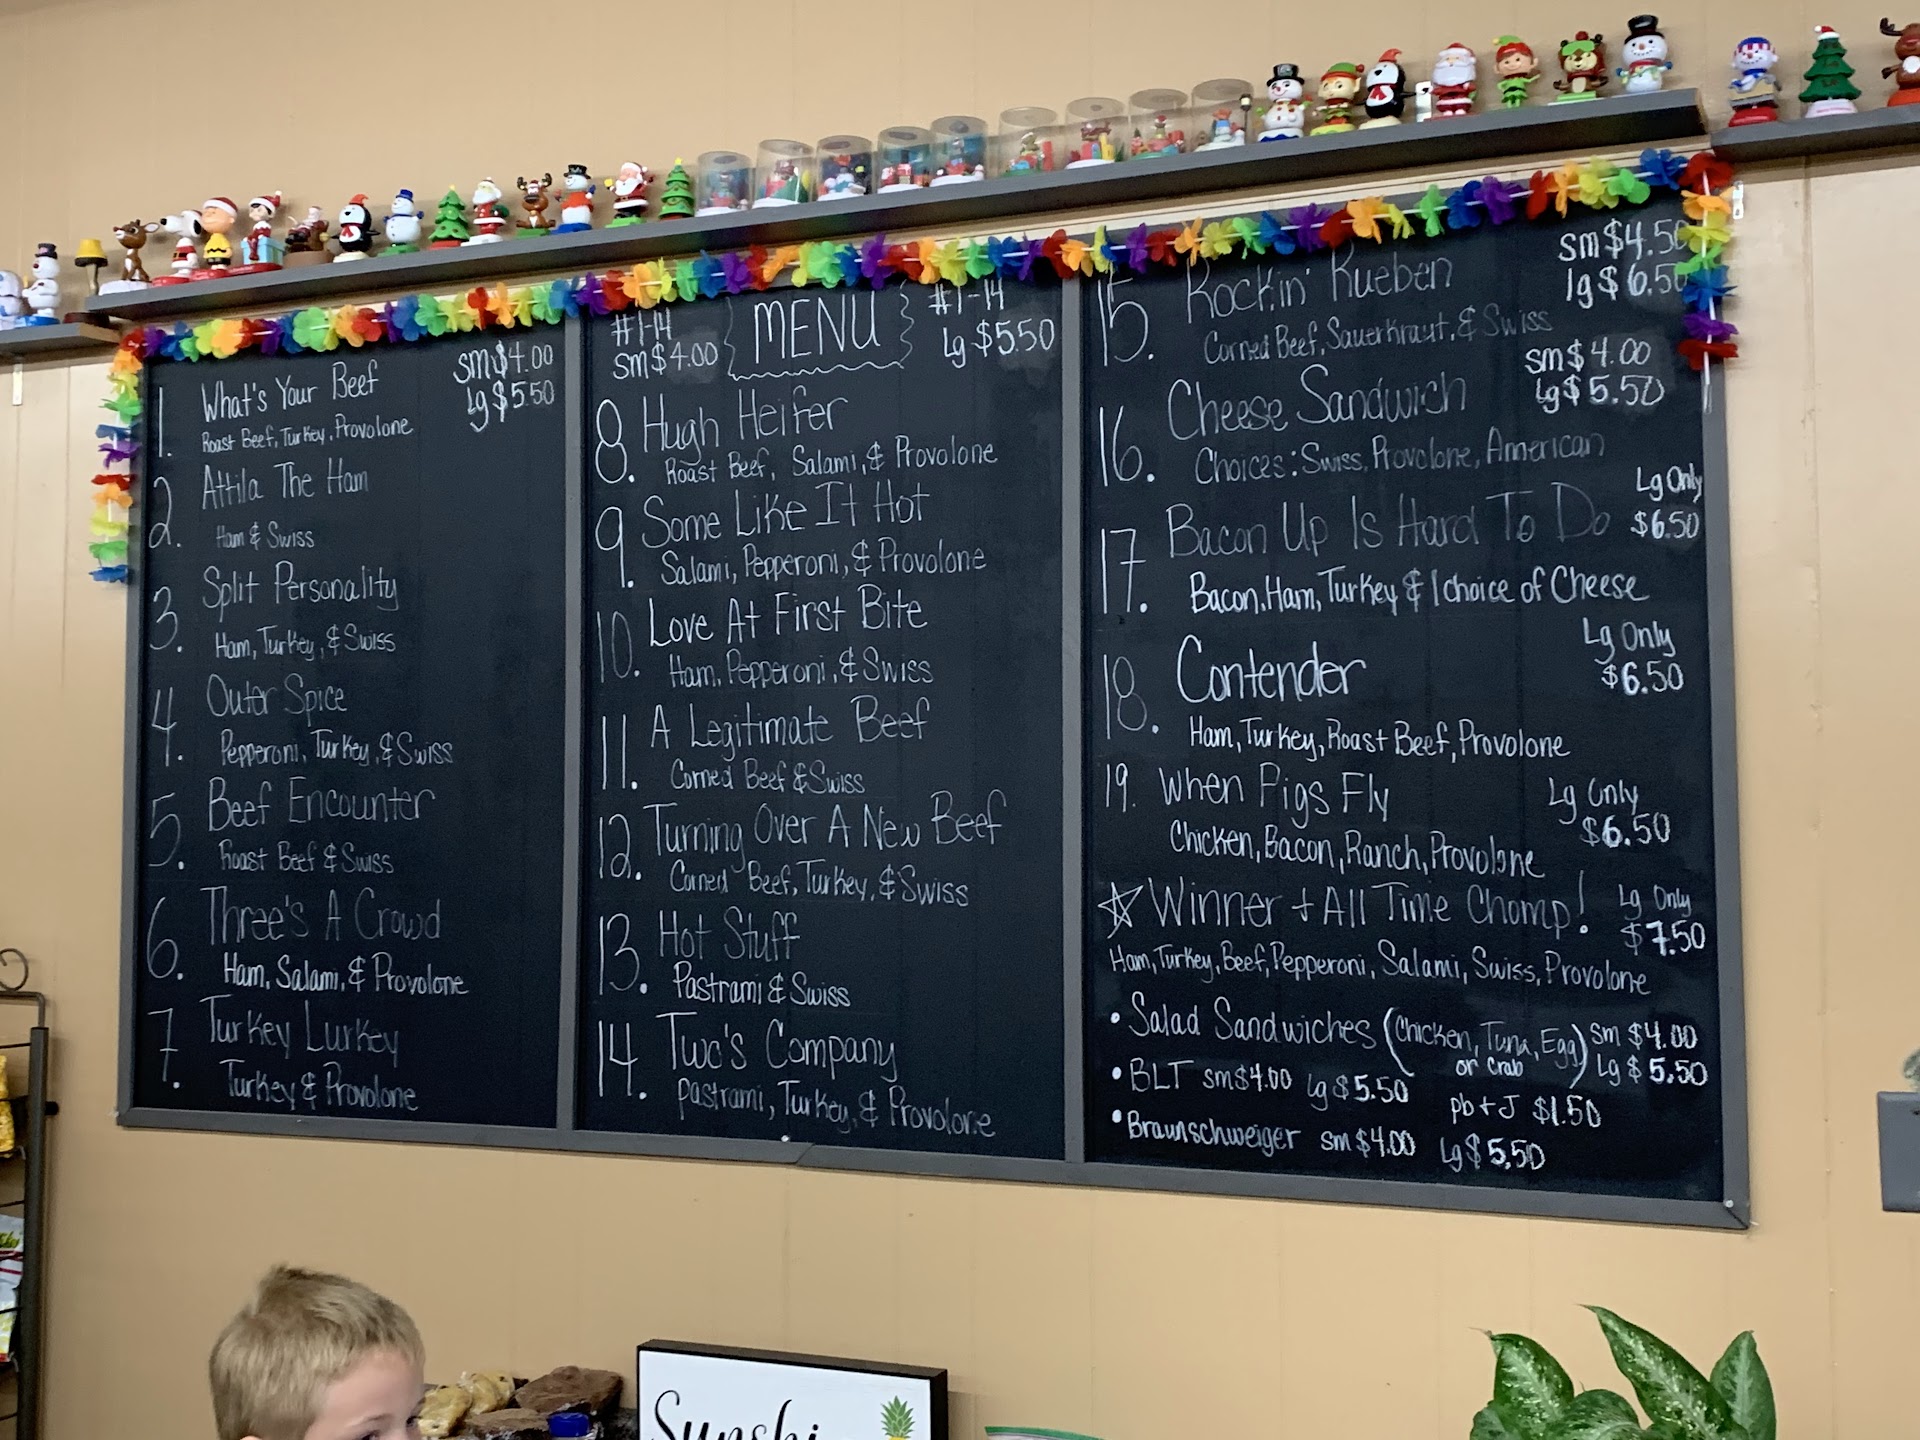 1. What's Your Beef
sm $4.00
lg $5.50
Roast Beef, Turkey, Provolone
2. Attila The Ham
Ham & Swiss
3. Split Personality
Ham, Turkey, & Swiss
4. Outer Spice
Pepperoni, Turkey, & Swiss
5. Beef Encounter
Roast Beef & Swiss
6. Three's A Crowd
Ham, Salami, & Provolone
7. Turkey Lurkey
Turkey & Provolone
#1-14
sm $4.00
MENU
#1-14
Lg $5.50
8. Hugh Heifer
Roast Beef, Salami, & Provolone
9. Some Like It Hot
Salami, Pepperoni, & Provolone
10. Love At First Bite
Ham, Pepperoni, & Swiss
11. A Legitimate Beef
Corned Beef & Swiss
12. Turning Over A New Beef
Corned Beef, Turkey, & Swiss
13. Hot Stuff
Pastrami & Swiss
14. Two's Company
Pastrami, Turkey, & Provolone
15. Rockin' Rueben
sm $4.50
lg $6.50
Corned Beef, Sauerkraut, & Swiss
16. Cheese Sandwich
sm $4.00
Lg $5.50
Choices: Swiss, Provolone, American
17. Bacon Up Is Hard To Do
Lg Only
$6.50
Bacon, Ham, Turkey & 1 choice of Cheese
18. Contender
Lg Only
$6.50
Ham, Turkey, Roast Beef, Provolone
19. When Pigs Fly
Lg Only
$6.50
Chicken, Bacon, Ranch, Provolone
Winner + All Time Chomp!
Lg Only
$7.50
Ham, Turkey, Beef, Pepperoni, Salami, Swiss, Provolone
• Salad Sandwiches (Chicken, Tuna, Egg or crab) sm $4.00
Lg $5.50
• BLT sm $4.00 lg $5.50
pb + J $1.50
• Braunschweiger sm $4.00 Lg $5.50